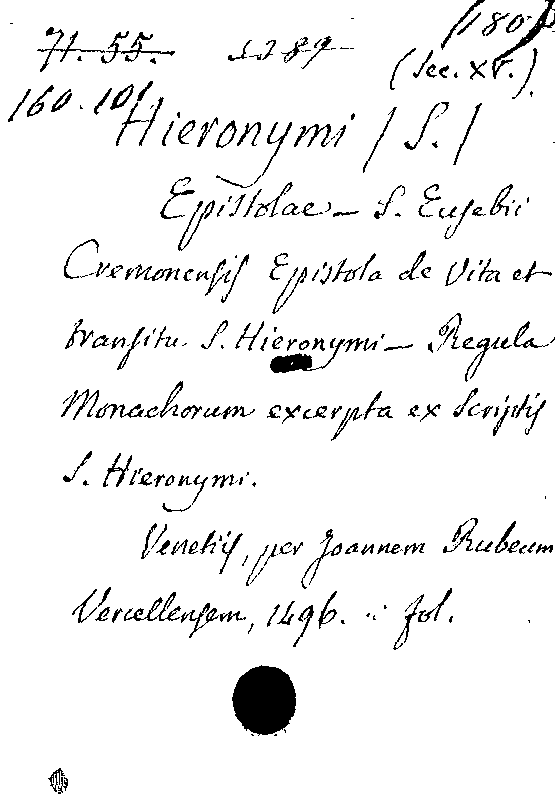 (180
71. 55.
(Sec. XV.)
160.10
Hieronymi (S.)
Epistolae — S. Eusebii
Cremonensis Epistola de Vita et
transitu S. Hieronymi — Regula
Monachorum excerpta ex Scriptis
S. Hieronymi.
Venetiis, per Joannem Rubeum
Vercellensem, 1496. fol.